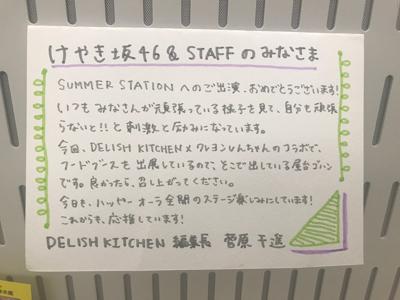 けやき坂46 & STAFFのみなさま
SUMMER STATION へのご出演、おめでとうございます!
いつもみなさんが頑張っている様子を見て、自分も頑張
らないと!!と刺激と励みになっています。
今回、DELISH KITCHEN × クレヨンしんちゃんのコラボで、
フードブースを出展しているので、そこで出している屋台ゴハン
です。良かったら、召し上がってください。
今日も、ハッピーオーラ全開のステージ楽しみにしています!
これからも、応援しています!
DELISH KITCHEN 編集長 菅原千遥